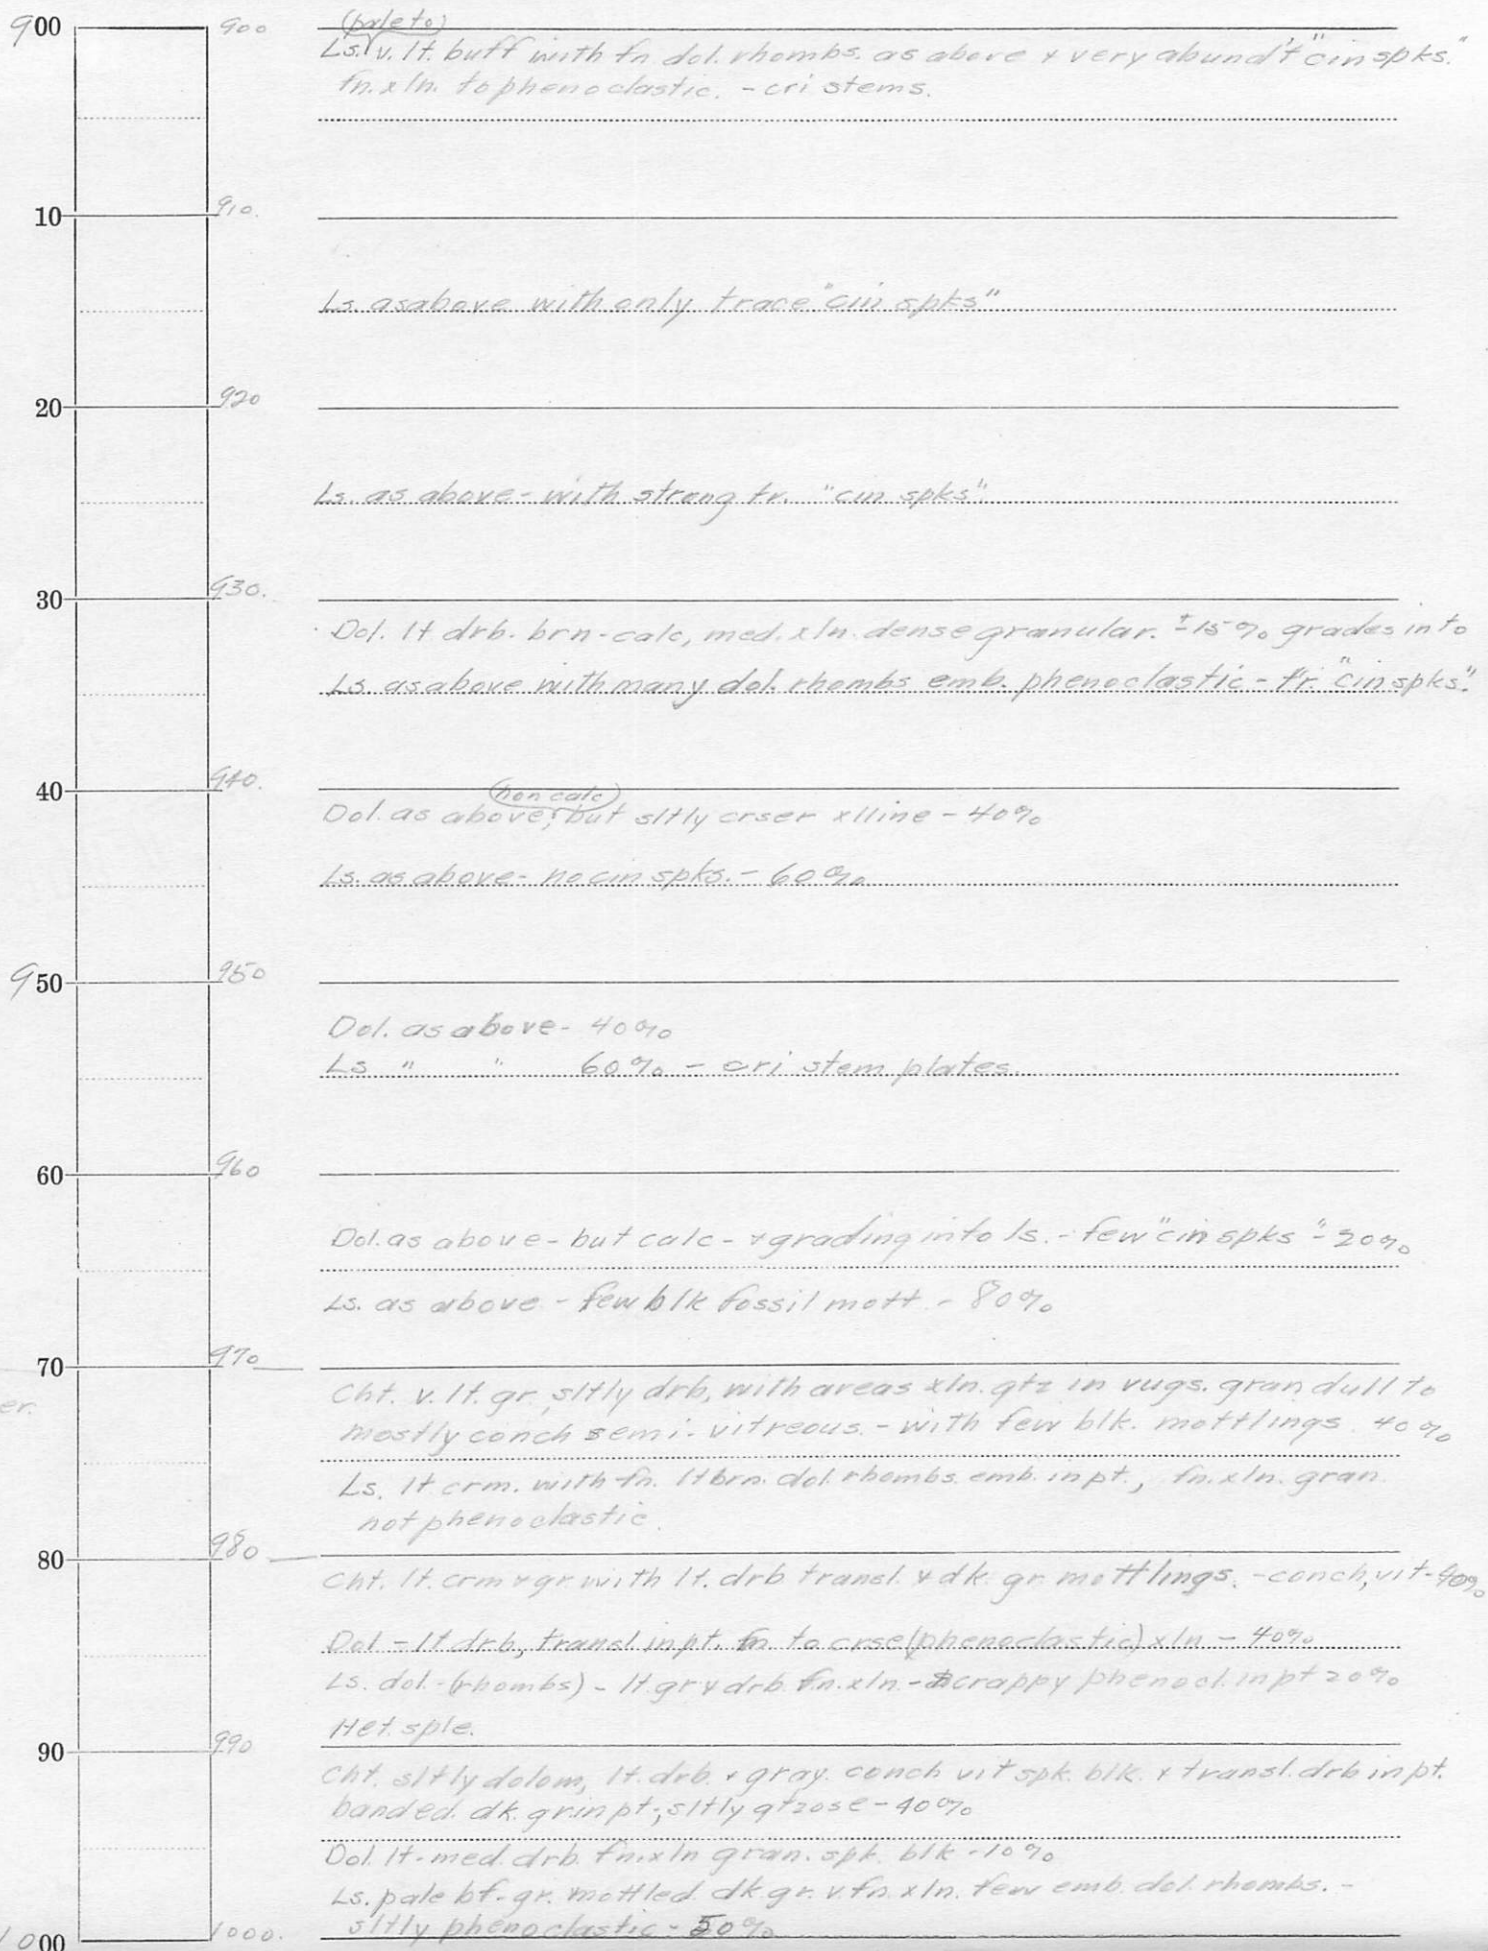 (pale to)
900 900
Ls. v. lt. buff with fn dol. rhombs. as above + very abund't "cin spks."
fn. xln. to phenoclastic. - cri stems.
10 910.
Ls. as above with only trace "cin spks"
20 920
Ls. as above - with strong tr. "cin spks".
30 930.
Dol. lt drb. brn - calc, med. xln. dense granular. ±15% grades into
Ls. as above with many dol. rhombs emb. phenoclastic - tr. "cin spks."
40 940.
(non calc)
Dol. as above; but sltly crser xlline - 40%
Ls. as above - no cin spks. - 60%
950 950
Dol. as above - 40%
Ls " " 60% - cri stem plates.
60 960
Dol. as above - but calc - + grading into ls. - few "cin spks" - 20%
Ls. as above - few blk fossil mott. - 80%
70 970
Cht. v. lt. gr, sltly drb, with areas xln. qtz in vugs. gran dull to
er.
mostly conch semi-vitreous. - with few blk. mottlings 40%
Ls. lt crm. with fn. lt brn. dol. rhombs. emb. in pt., fn. xln. gran
not phenoclastic.
80 980
Cht. lt. crm + gr. with lt. drb transl. + dk. gr. mottlings. - conch, vit - 40%
Dol - lt drb, transl in pt. fn. to crse (phenoclastic) xln - 40%
Ls. dol - (rhombs) - lt. gr + drb. fn. xln - scrappy phenocl. in pt 20%
Het. sple.
90 990
Cht. sltly dolom, lt. drb. + gray. conch vit spk. blk. + transl. drb in pt.
banded. dk. gr. in pt., sltly qtzose - 40%
Dol. lt - med. drb. fn. xln gran. spk. blk - 10%
Ls. pale bf - gr. mottled dk gr. v. fn. xln. few emb. dol. rhombs. -
sltly phenoclastic - 50%
1000 1000.